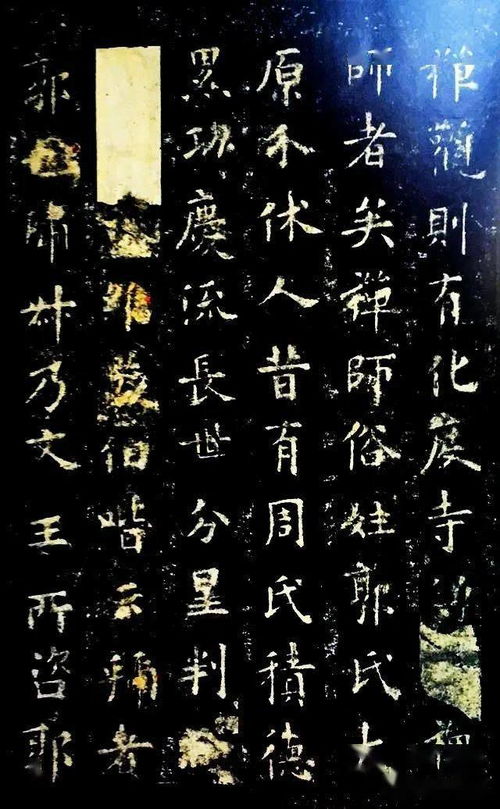 禪觀則有化度寺僧禪
師者矣禪師俗姓郭氏太
原介休人昔有周氏積德
累功慶流長世分星判
維蔡伯喈云虢者
郭虢叔乃文王所咨郭